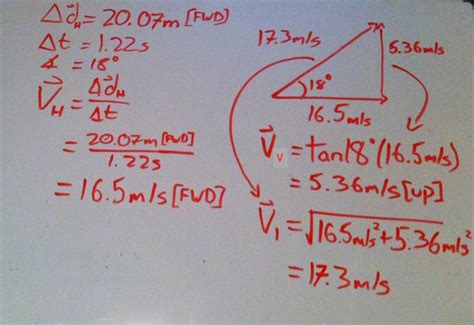 Δd⃗H = 20.07m [FWD]
Δt = 1.22s
∡ = 18°
V⃗H = Δd⃗H / Δt
= 20.07m [FWD] / 1.22s
= 16.5m/s [FWD]
17.3m/s
5.36m/s
18°
16.5m/s
V⃗v = tan18° (16.5m/s)
= 5.36m/s [up]
V⃗1 = √16.5m/s² + 5.36m/s²
= 17.3m/s